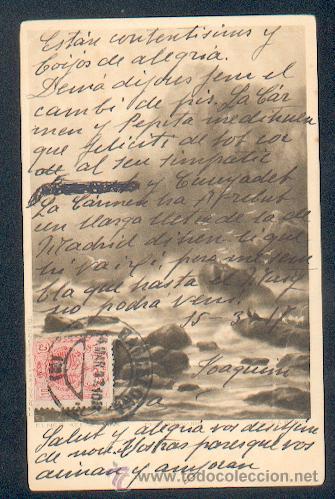 Están contentisims y
bojos de alegria.
Demá dijous fem el
cambi de pis. La Cár
men y Pepita me diuen
que feliciti de tot cor
de al seu simpatic
y Cunyadet
La Carmen ha rebut
un llarga lletra de la de
Madrid diuen li que
hi vaigi pero me sem
bla que hasta el Maig
no podra veni.
15-3-
Joaquim
Salut y alegria vos desitjem
de nou. Vostras pares que vos
aiman y anyoran
todocoleccion.net